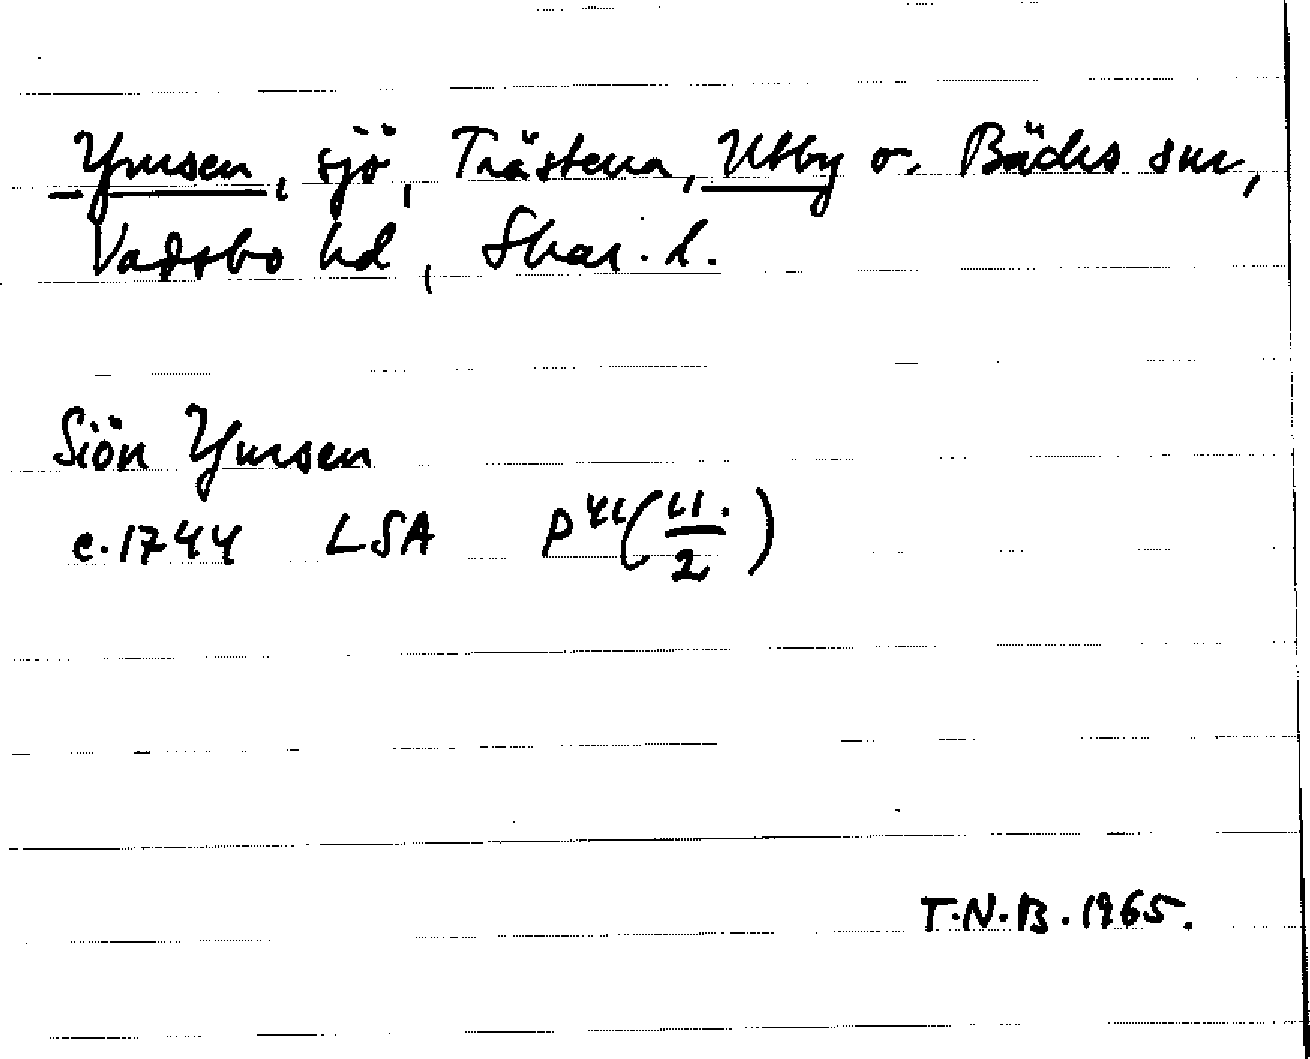 Ymsen, sjö, Trästena, Utby o. Bäcks snr,
Vadsbo hd, Skar. l.
Siön Ymsen
c. 1744 LSA P 41 (11./2)
T.N.B. 1965.